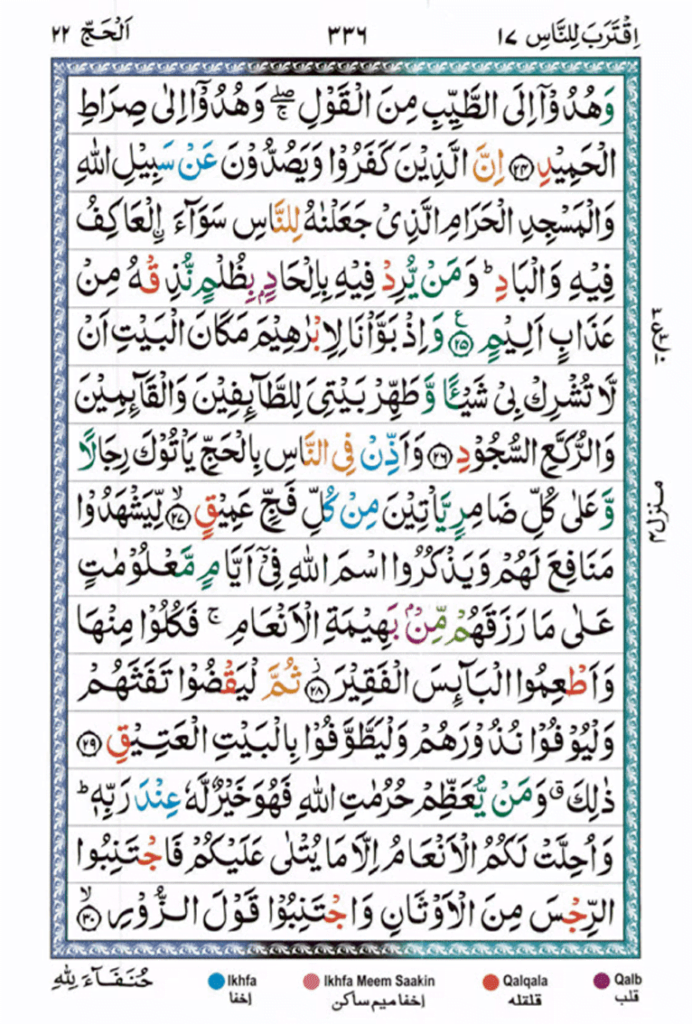 اِقْتَرَبَ لِلنَّاسِ ١٧ ٣٣٦ اَلْحَجّ ٢٢
وَهُدُوْۤا اِلَى الطَّيِّبِ مِنَ الْقَوْلِ ۚۖ وَهُدُوْۤا اِلٰى صِرَاطِ
الْحَمِيْدِ ﴿٢٤﴾ اِنَّ الَّذِيْنَ كَفَرُوْا وَيَصُدُّوْنَ عَنْ سَبِيْلِ اللّٰهِ
وَالْمَسْجِدِ الْحَرَامِ الَّذِىْ جَعَلْنٰهُ لِلنَّاسِ سَوَآءَ ۨالْعَاكِفُ
فِيْهِ وَالْبَادِ ؕ وَمَنْ يُّرِدْ فِيْهِ بِاِلْحَادٍۭ بِظُلْمٍ نُّذِقْهُ مِنْ
عَذَابٍ اَلِيْمٍ ﴿٢٥﴾ ع وَاِذْ بَوَّاْنَا لِاِبْرٰهِيْمَ مَكَانَ الْبَيْتِ اَنْ
لَّا تُشْرِكْ بِىْ شَيْـًٔا وَّطَهِّرْ بَيْتِىَ لِلطَّآئِفِيْنَ وَالْقَآئِمِيْنَ
وَالرُّكَّعِ السُّجُوْدِ ﴿٢٦﴾ وَاَذِّنْ فِى النَّاسِ بِالْحَجِّ يَاْتُوْكَ رِجَالًا
وَّعَلٰى كُلِّ ضَامِرٍ يَّاْتِيْنَ مِنْ كُلِّ فَجٍّ عَمِيْقٍ ۙ﴿٢٧﴾ لِّيَشْهَدُوْا
مَنَافِعَ لَهُمْ وَيَذْكُرُوا اسْمَ اللّٰهِ فِىْۤ اَيَّامٍ مَّعْلُوْمٰتٍ
عَلٰى مَا رَزَقَهُمْ مِّنْۢ بَهِيْمَةِ الْاَنْعَامِ ۚ فَكُلُوْا مِنْهَا
وَاَطْعِمُوا الْبَآئِسَ الْفَقِيْرَ ۫﴿٢٨﴾ ثُمَّ لْيَقْضُوْا تَفَثَهُمْ
وَلْيُوْفُوْا نُذُوْرَهُمْ وَلْيَطَّوَّفُوْا بِالْبَيْتِ الْعَتِيْقِ ﴿٢٩﴾
ذٰلِكَ ۗ وَمَنْ يُّعَظِّمْ حُرُمٰتِ اللّٰهِ فَهُوَ خَيْرٌ لَّهٗ عِنْدَ رَبِّهٖ ؕ
وَاُحِلَّتْ لَكُمُ الْاَنْعَامُ اِلَّا مَا يُتْلٰى عَلَيْكُمْ فَاجْتَنِبُوا
الرِّجْسَ مِنَ الْاَوْثَانِ وَاجْتَنِبُوْا قَوْلَ الزُّوْرِ ۙ﴿٣٠﴾
منزل ٤
حُنَفَآءَ لِلّٰهِ
Ikhfa Ikhfa Meem Saakin Qalqala Qalb
اخفا اخفا میم ساکن قلقلہ قلب